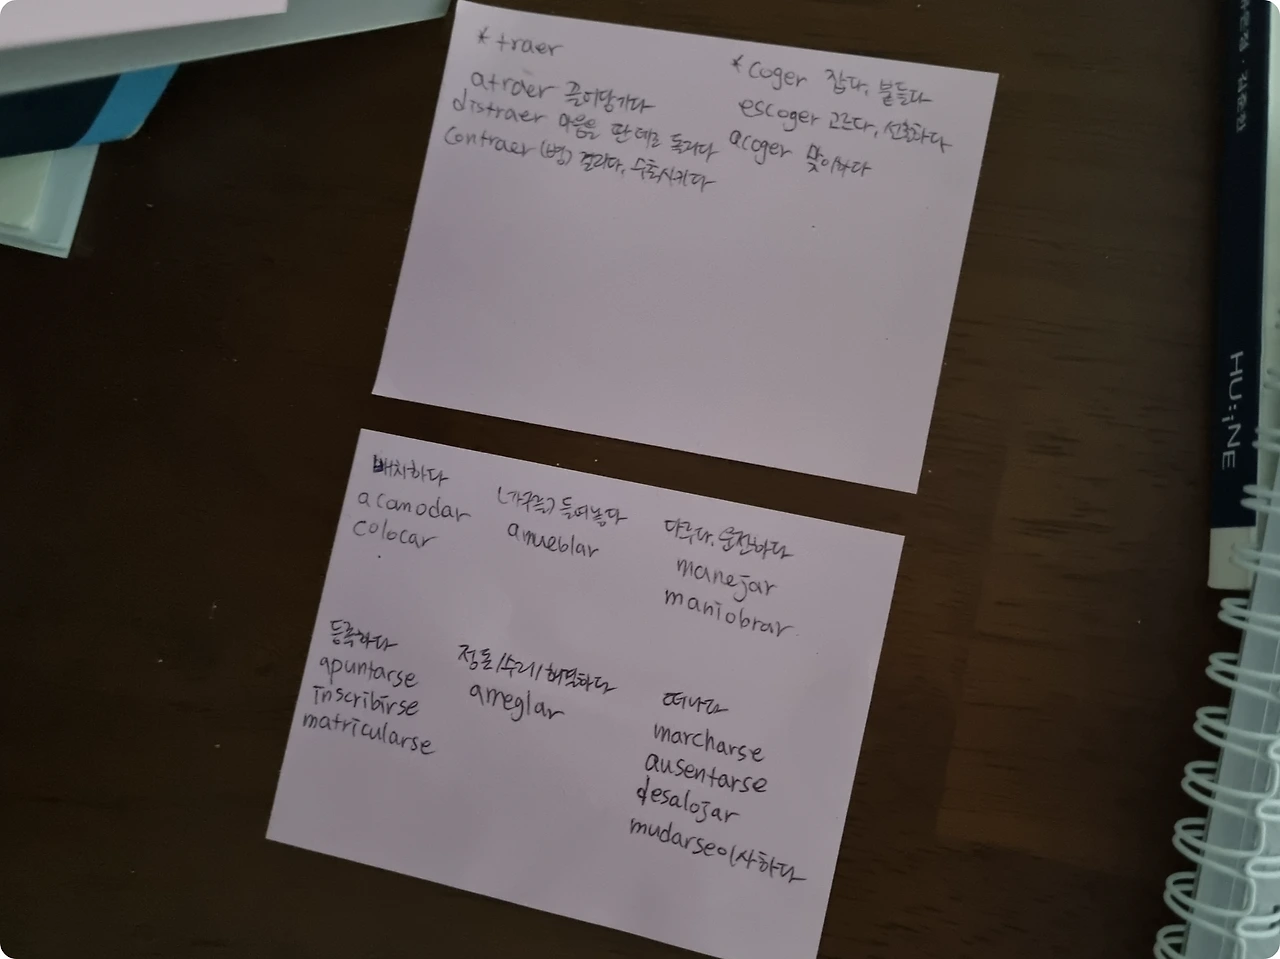 * traer
atraer 끌어당기다
distraer 마음을 딴 데로 돌리다
contraer (병) 걸리다, 수축시키다
* coger 잡다, 붙들다
escoger 고르다, 선호하다
acoger 맞이하다
배치하다
acomodar
colocar
(가구를) 들여놓다
amueblar
다루다, 운전하다
manejar
maniobrar
등록하다
apuntarse
inscribirse
matricularse
정돈/수리/해결하다
arreglar
떠나다
marcharse
ausentarse
desalojar
mudarse 이사하다
HU:iNE